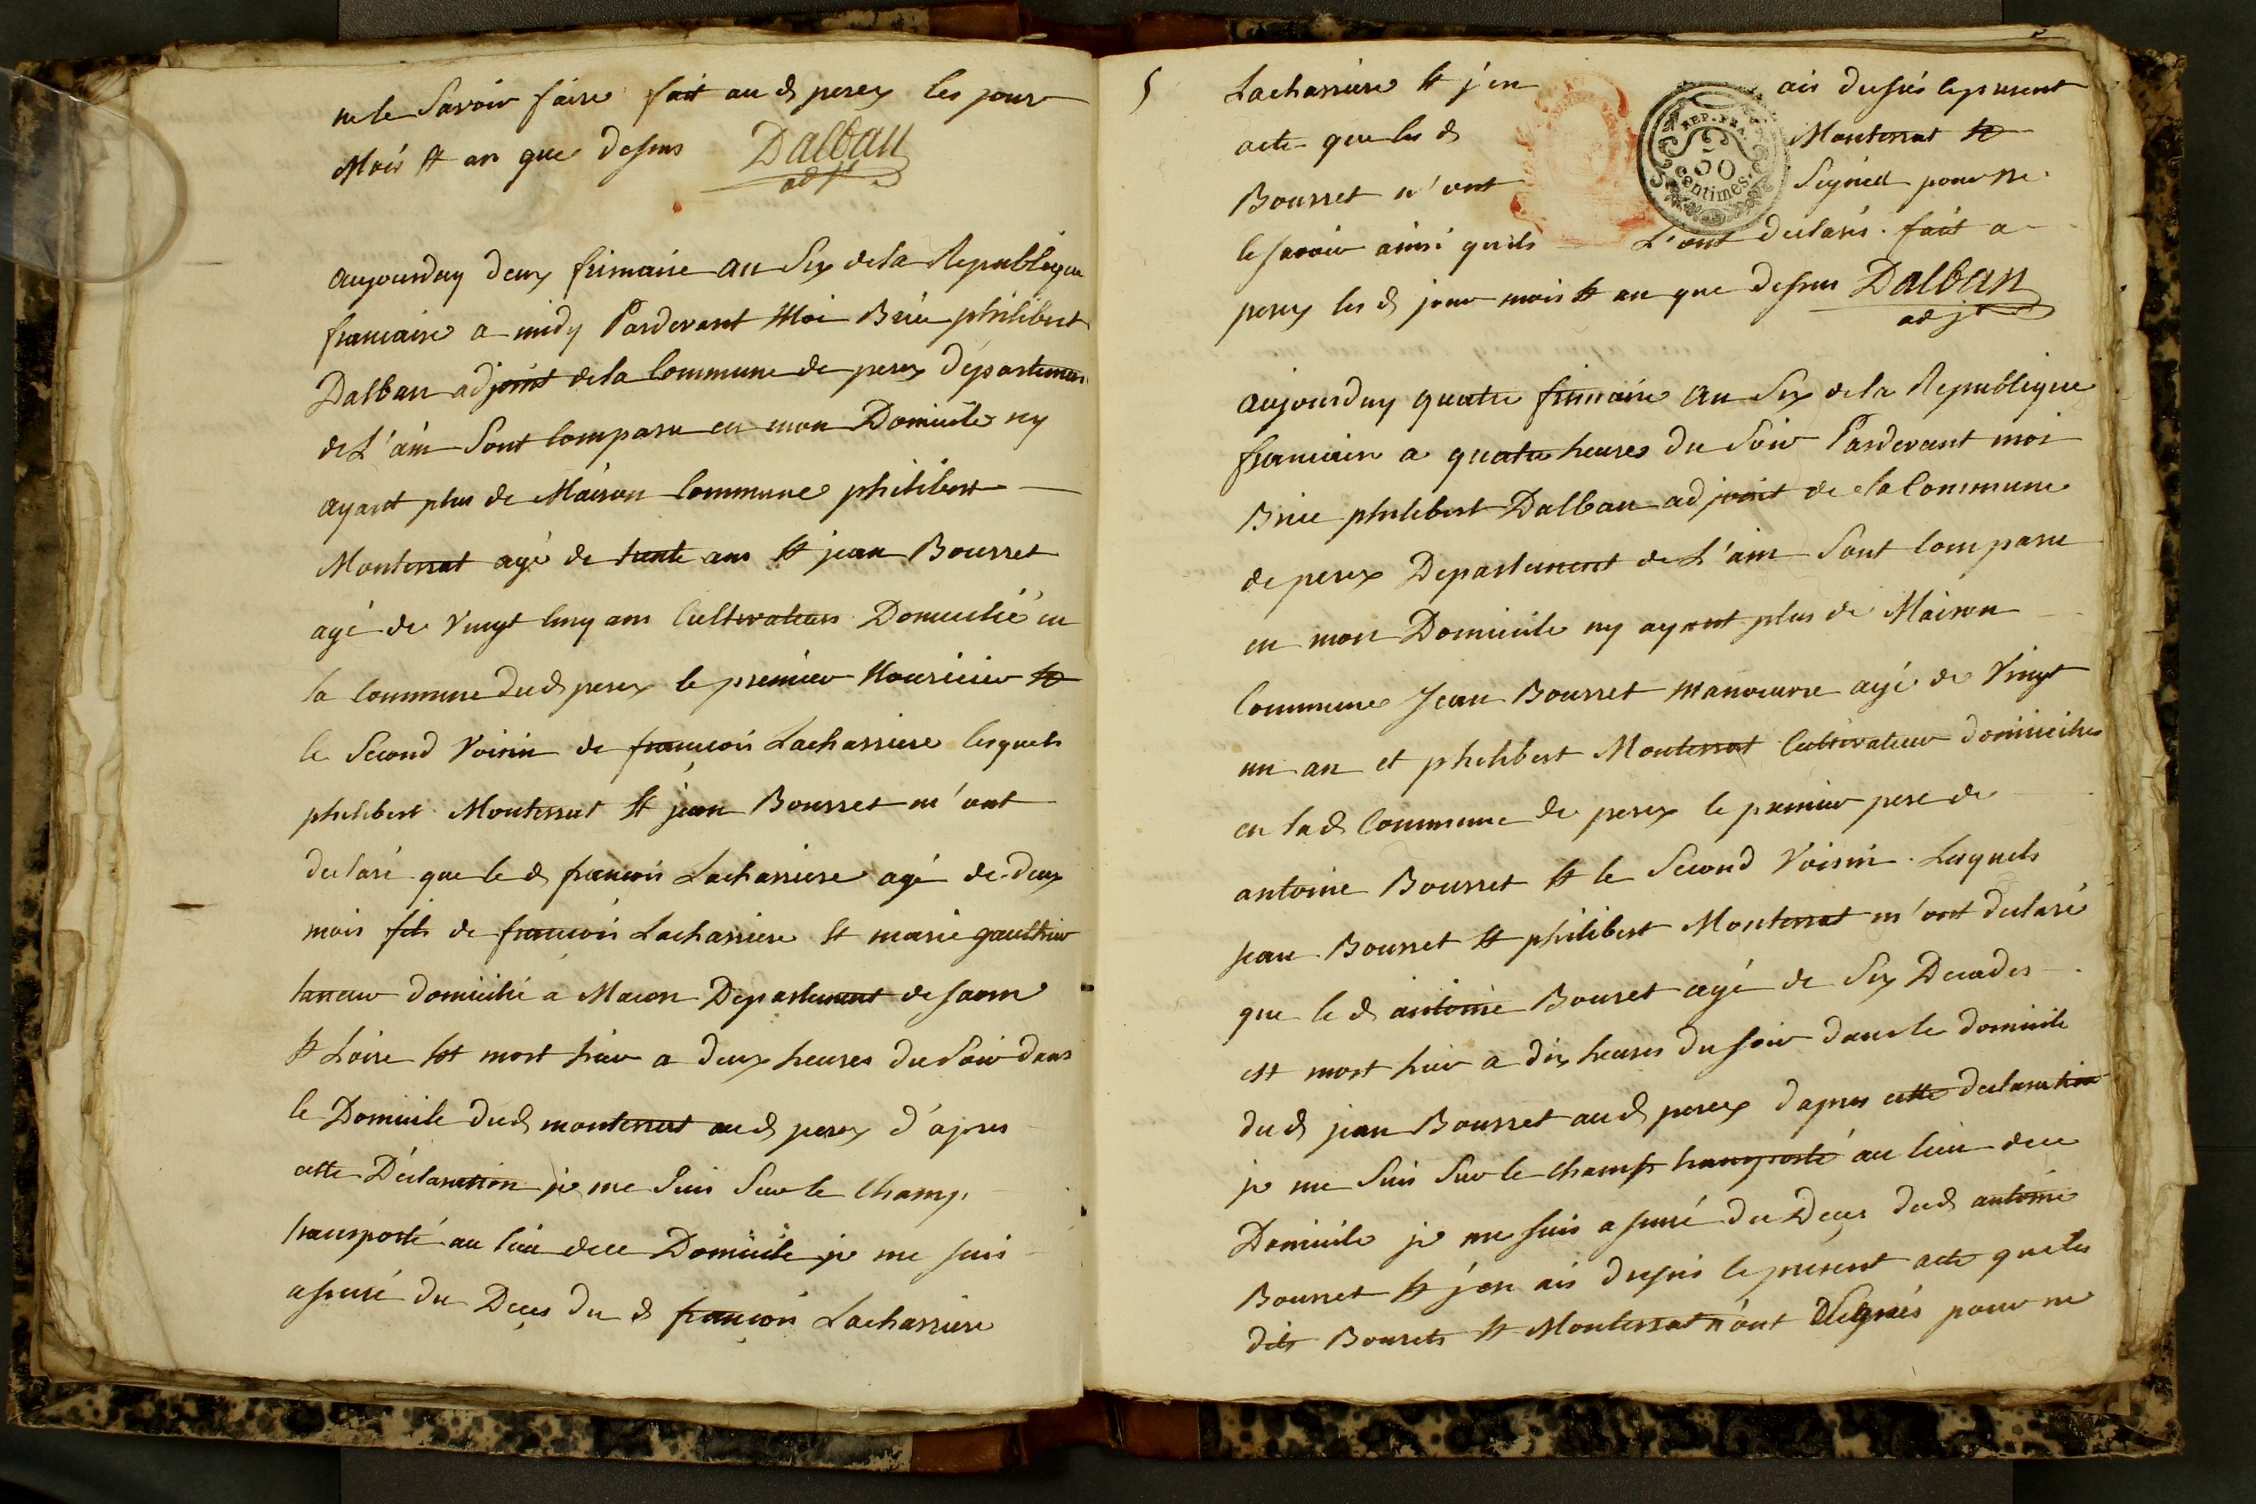 ne le Savoir faire fait au d perex les jour
Mois et an que dessus Dalban
adjt
aujourduy deux frimaire an Six de la Republique
francaise a midy Pardevant Moi Brice philibert
Dalban adjoint de la Commune de perex département
de L'ain Sont Comparu en mon Domicile ny
ayant plus de Maison Commune philibert
Monterrat agé de trente ans et jean Bourset
agé de Vingt Cinq ans Cultivateurs Domicilié en
la Commune dud perex le premier Nouricier et
le Second Voisin de francois Lacharriere lesquels
philibert Monterrat et jean Bousset m'ont
declaré que le d francois Lacharriere agé de deux
mois fils de francois Lacharriere et marie gaulthier
taneur domicilié a Macon Departement de saone
et Loire est mort hier a deux heures du Soir dans
le Domicile dud monterrat aud perex d'apres
cette Déclaration je me Suis Sur le Champ
transporté au lieu de ce Domicile je me suis
assuré du Deces du d francois Lacharriere
5
Lacharriere et j'en ais dressés le present
acte que les d Monterrat et
Bousset n'ont Signés pour ne
le savoir ainsi quils L'ont declarés. fait a
perex les d jour mois et an que dessus Dalban
adjt
REP. FRA.
50
centimes.
aujourduy quatre frimaire an Six de la Republique
francaise a quatre heures du Soir Pardevant moi
Brice philibert Dalban adjoint de la Commune
de perex Departement de L'ain Sont Comparu
en mon Domicile ny ayant plus de Maison
Commune Jean Bousset manoeuvre agé de Vingt
un an et philibert Monterrat Cultivateur domiciliés
en lad Commune de perex le premier pere de
antoine Bousset et le Second Voisin. Lesquels
jean Bousset et philibert Monterrat m'ont declaré
que le d antoine Bouset agé de Six Decades
est mort hier a dix heures du soir dans le domicile
dud jean Bousset aud perex d'apres cette declaration
je me Suis Sur le champ transporté au lieu de ce
Domicile je me suis assuré du Deces dud antoine
Bousset et j'en ais dressés le present acte que les
dits Bousets et Monterrat n'ont Signés pour ne